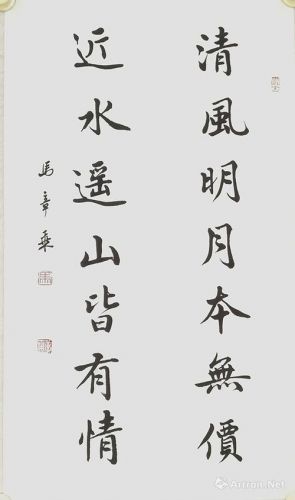 清風明月本無價
近水遥山皆有情
馬章乘
Artron.Net